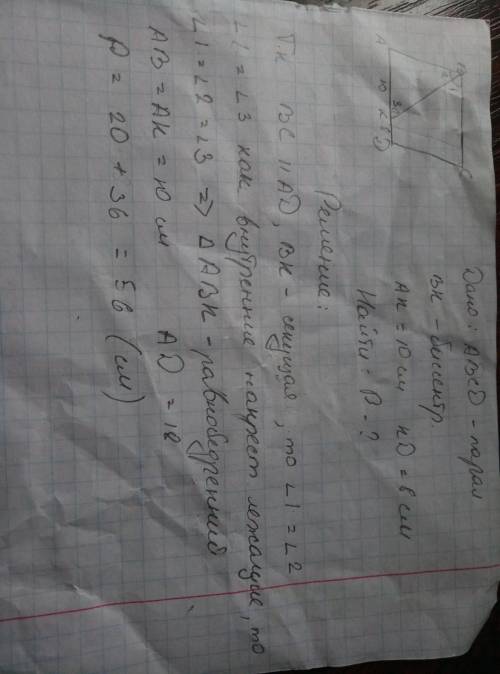 Дано: ABCD - парал
BK - биссектр.
AK = 10 см KD = 8 см
Найти: P - ?
B C
2 1
3
A 10 K 8 D
Решение:
Т.к BC || AD, BK - секущая, то ∠1 = ∠2
∠1 = ∠3 как внутренние накрест лежащие, то
∠1 = ∠2 = ∠3 => ΔABK - равнобедренный
AB = AK = 10 см AD = 18
P = 20 + 36 = 56 (см)